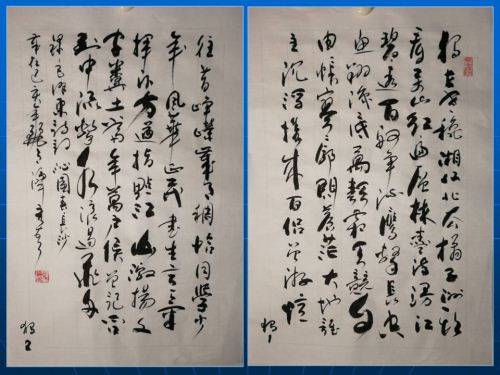 独立寒秋湘江北去橘子洲头
看万山红遍层林尽染漫江
碧透百舸争流鹰击长空
鱼翔浅底萬類霜天竞自
由怅寥廓問苍茫大地谁
主沉浮携来百侣曾游忆
独1
往昔峥嵘岁月稠恰同學少
年风华正茂书生意气
挥斥方遒指點江山激揚文
字粪土当年萬户侯曾记否
到中流击水浪遏飞舟
泽東詩词沁園春長沙
独2